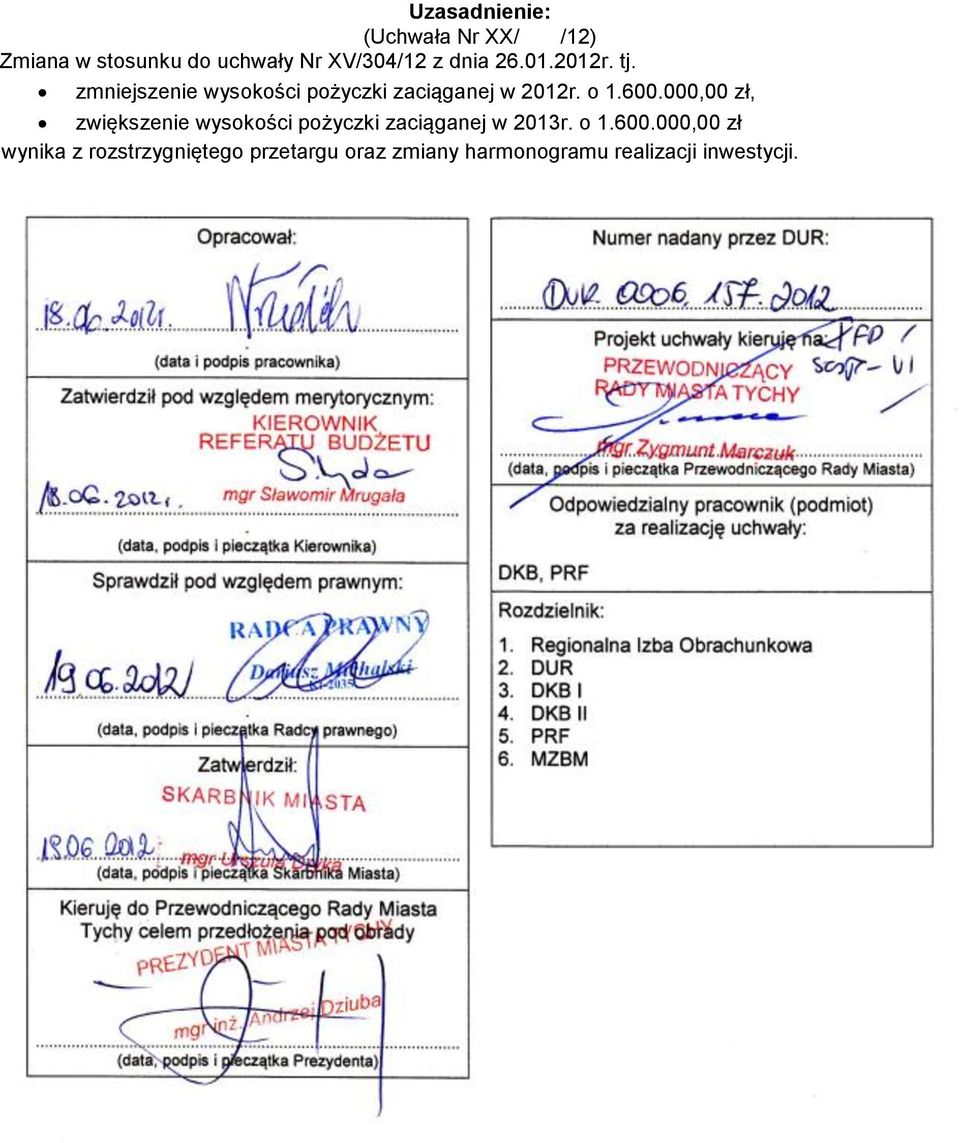 Uzasadnienie:
(Uchwała Nr XX/ /12)
Zmiana w stosunku do uchwały Nr XV/304/12 z dnia 26.01.2012r. tj.
• zmniejszenie wysokości pożyczki zaciąganej w 2012r. o 1.600.000,00 zł,
• zwiększenie wysokości pożyczki zaciąganej w 2013r. o 1.600.000,00 zł
wynika z rozstrzygniętego przetargu oraz zmiany harmonogramu realizacji inwestycji.
Opracował:
18.06.2012r.
(data i podpis pracownika)
Zatwierdził pod względem merytorycznym:
KIEROWNIK
REFERATU BUDŻETU
18.06.2012r.
mgr Sławomir Mrugała
(data, podpis i pieczątka Kierownika)
Sprawdził pod względem prawnym:
RADCA PRAWNY
Dariusz Michalski
KT-2035
19.06.2012
(data, podpis i pieczątka Radcy prawnego)
Zatwierdził:
SKARBNIK MIASTA
19.06 2012
mgr Urszula Dryka
(data, podpis i pieczątka Skarbnika Miasta)
Kieruję do Przewodniczącego Rady Miasta
Tychy celem przedłożenia pod obrady
PREZYDENT MIASTA TYCHY
mgr inż. Andrzej Dziuba
(data, podpis i pieczątka Prezydenta)
Numer nadany przez DUR:
DUR. 0006. 157. 2012
Projekt uchwały kieruję na:
PRZEWODNICZĄCY
RADY MIASTA TYCHY
mgr Zygmunt Marczuk
(data, podpis i pieczątka Przewodniczącego Rady Miasta)
Odpowiedzialny pracownik (podmiot)
za realizację uchwały:
DKB, PRF
Rozdzielnik:
1. Regionalna Izba Obrachunkowa
2. DUR
3. DKB I
4. DKB II
5. PRF
6. MZBM